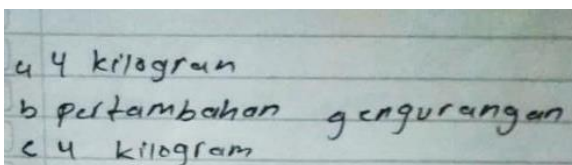 a 4 kilogran
b pertambahan gengurangan
c 4 kilogram